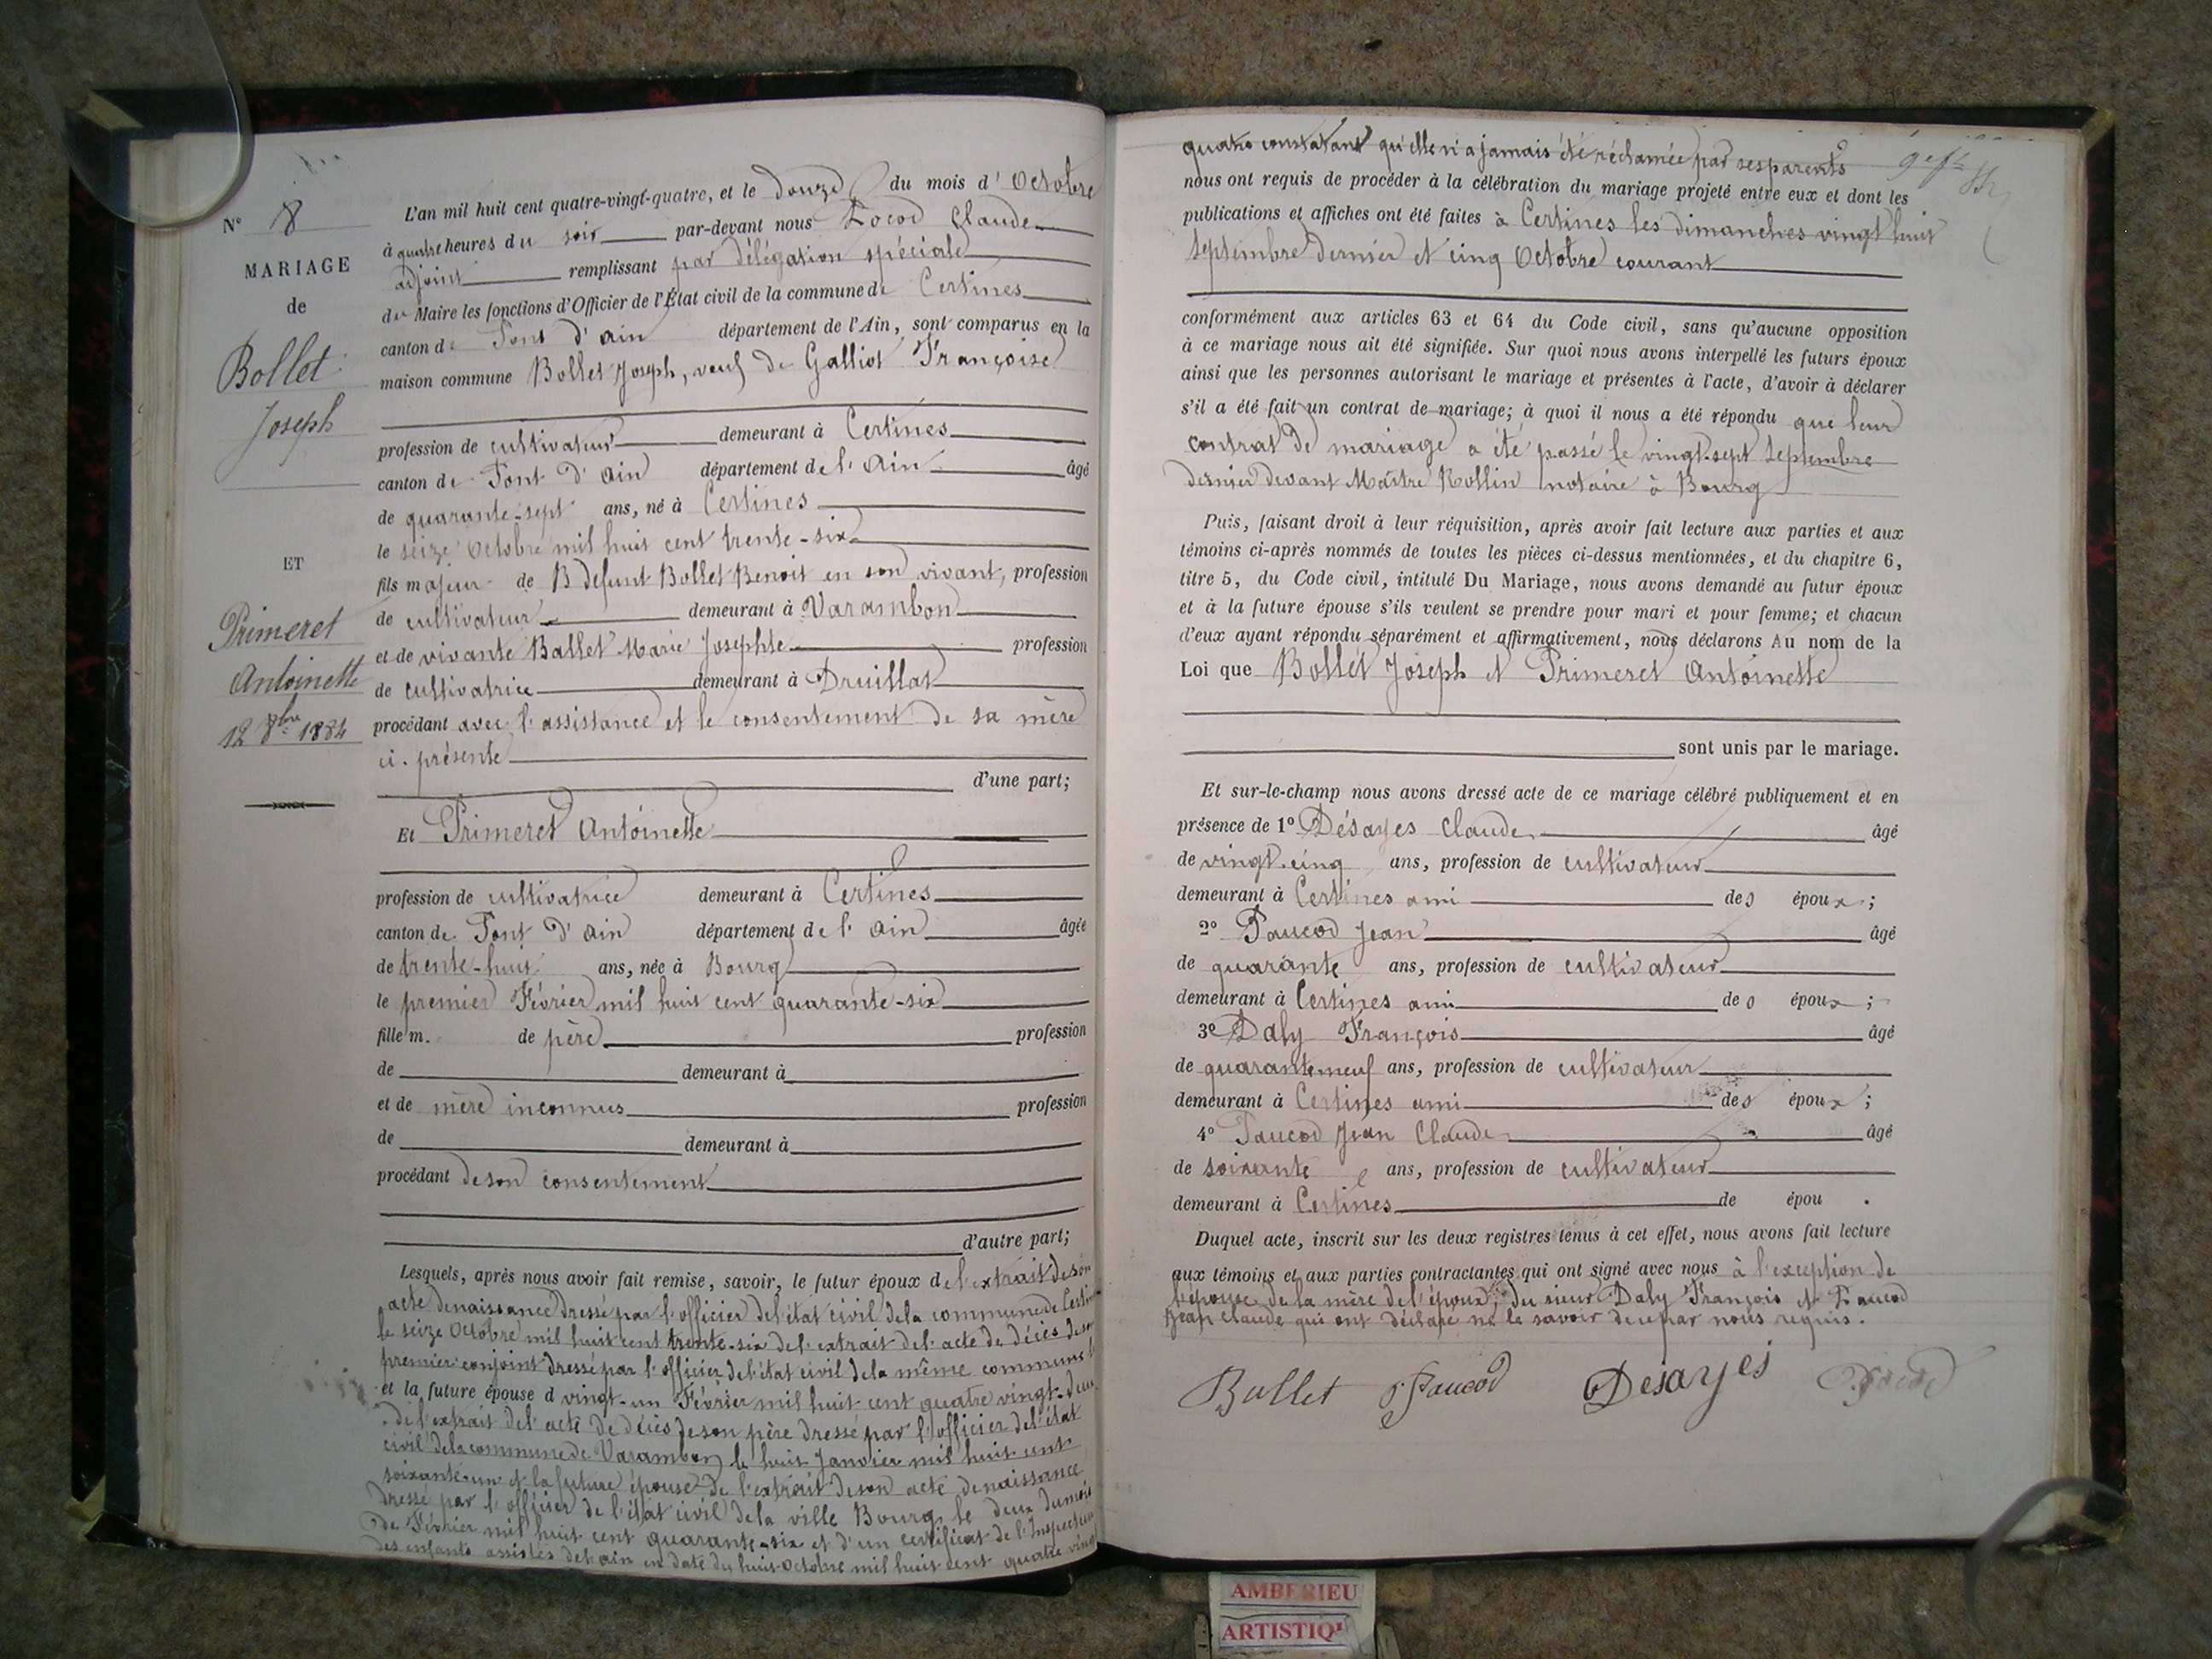 N° 8
MARIAGE
de
Bollet
Joseph
ET
Primeret
Antoinette
12 8bre 1884
L'an mil huit cent quatre-vingt-quatre, et le douze du mois d' Octobre
à quatre heures du soir par-devant nous Locod Claude
adjoint remplissant par délégation spéciale
du Maire les fonctions d'Officier de l'État civil de la commune de Certines
canton de Pont d'ain département de l'Ain, sont comparus en la
maison commune Bollet Joseph, veuf de Galliot Françoise
profession de cultivateur demeurant à Certines
canton de Pont d'ain département de l'ain âgé
de quarante-sept ans, né à Certines
le seize Octobre mil huit cent trente-six
fils majeur de B défunt Bollet Benoit en son vivant, profession
de cultivateur demeurant à Varambon
et de vivante Ballet Marie Josephte profession
de cultivatrice demeurant à Druillat
procédant avec l'assistance et le consentement de sa mère
ci-présente
d'une part;
Et Primeret Antoinette
profession de cultivatrice demeurant à Certines
canton de Pont d'ain département de l'ain âgée
de trente-huit ans, née à Bourg
le premier Février mil huit cent quarante-six
fille m. de père profession
de demeurant à
et de mère inconnus profession
de demeurant à
procédant de son consentement
d'autre part;
Lesquels, après nous avoir fait remise, savoir, le futur époux de l'extrait de son
acte de naissance dressé par l'officier de l'état civil de la commune de Certines
le seize Octobre mil huit cent trente-six de l'extrait de l'acte de décès de son
premier conjoint dressé par l'officier de l'état civil de la même commune le
et la future épouse d vingt-un Février mil huit cent quatre vingt-deux
de l'extrait de l'acte de décès de son père dressé par l'officier de l'état
civil de la commune de Varambon le huit Janvier mil huit cent
soixante-un et la future épouse de l'extrait de son acte de naissance
dressé par l'officier de l'état civil de la ville Bourg le deux du mois
de Février mil huit cent quarante-six et d'un certificat de l'Inspecteur
des enfants assistés de l'ain en date du huit Octobre mil huit cent quatre vingt
quatre constatant qu'elle n'a jamais été réclamée par ses parents
nous ont requis de procéder à la célébration du mariage projeté entre eux et dont les
publications et affiches ont été faites à Certines les dimanches vingt huit
Septembre dernier et cinq Octobre courant
conformément aux articles 63 et 64 du Code civil, sans qu'aucune opposition
à ce mariage nous ait été signifiée. Sur quoi nous avons interpellé les futurs époux
ainsi que les personnes autorisant le mariage et présentes à l'acte, d'avoir à déclarer
s'il a été fait un contrat de mariage; à quoi il nous a été répondu que leur
contrat de mariage a été passé le vingt-sept Septembre
dernier devant Maître Rollin notaire à Bourg
Puis, faisant droit à leur réquisition, après avoir fait lecture aux parties et aux
témoins ci-après nommés de toutes les pièces ci-dessus mentionnées, et du chapitre 6,
titre 5, du Code civil, intitulé Du Mariage, nous avons demandé au futur époux
et à la future épouse s'ils veulent se prendre pour mari et pour femme; et chacun
d'eux ayant répondu séparément et affirmativement, nous déclarons Au nom de la
Loi que Bollet Joseph et Primeret Antoinette
sont unis par le mariage.
Et sur-le-champ nous avons dressé acte de ce mariage célébré publiquement et en
présence de 1° Désayes Claude âgé
de vingt-cinq ans, profession de cultivateur
demeurant à Certines ami des époux;
2° Paucod Jean âgé
de quarante ans, profession de cultivateur
demeurant à Certines ami des époux;
3e Daly François âgé
de quarante neuf ans, profession de cultivateur
demeurant à Certines ami des époux;
4° Paucod Jean Claude âgé
de soixante ans, profession de cultivateur
demeurant à Certines de épou .
Duquel acte, inscrit sur les deux registres tenus à cet effet, nous avons fait lecture
aux témoins et aux parties contractantes qui ont signé avec nous à l'exception de
l'épouse de la mère de l'époux, du sieur Daly François et Paucod
Jean Claude qui ont déclaré ne le savoir de ce par nous requis.
Bollet Paucod Desayes
AMBERIEU
ARTISTIQ